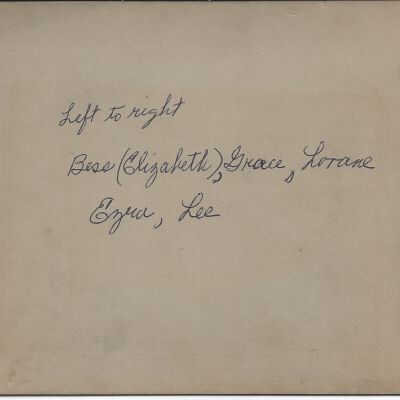 Left to right
Bess (Elizabeth), Grace, Lorane
Ezra, Lee